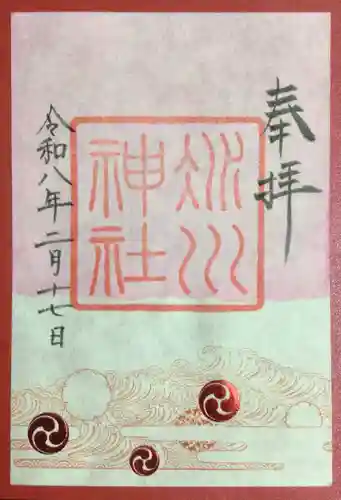 奉拝
冰川
神社
令和八年二月十七日